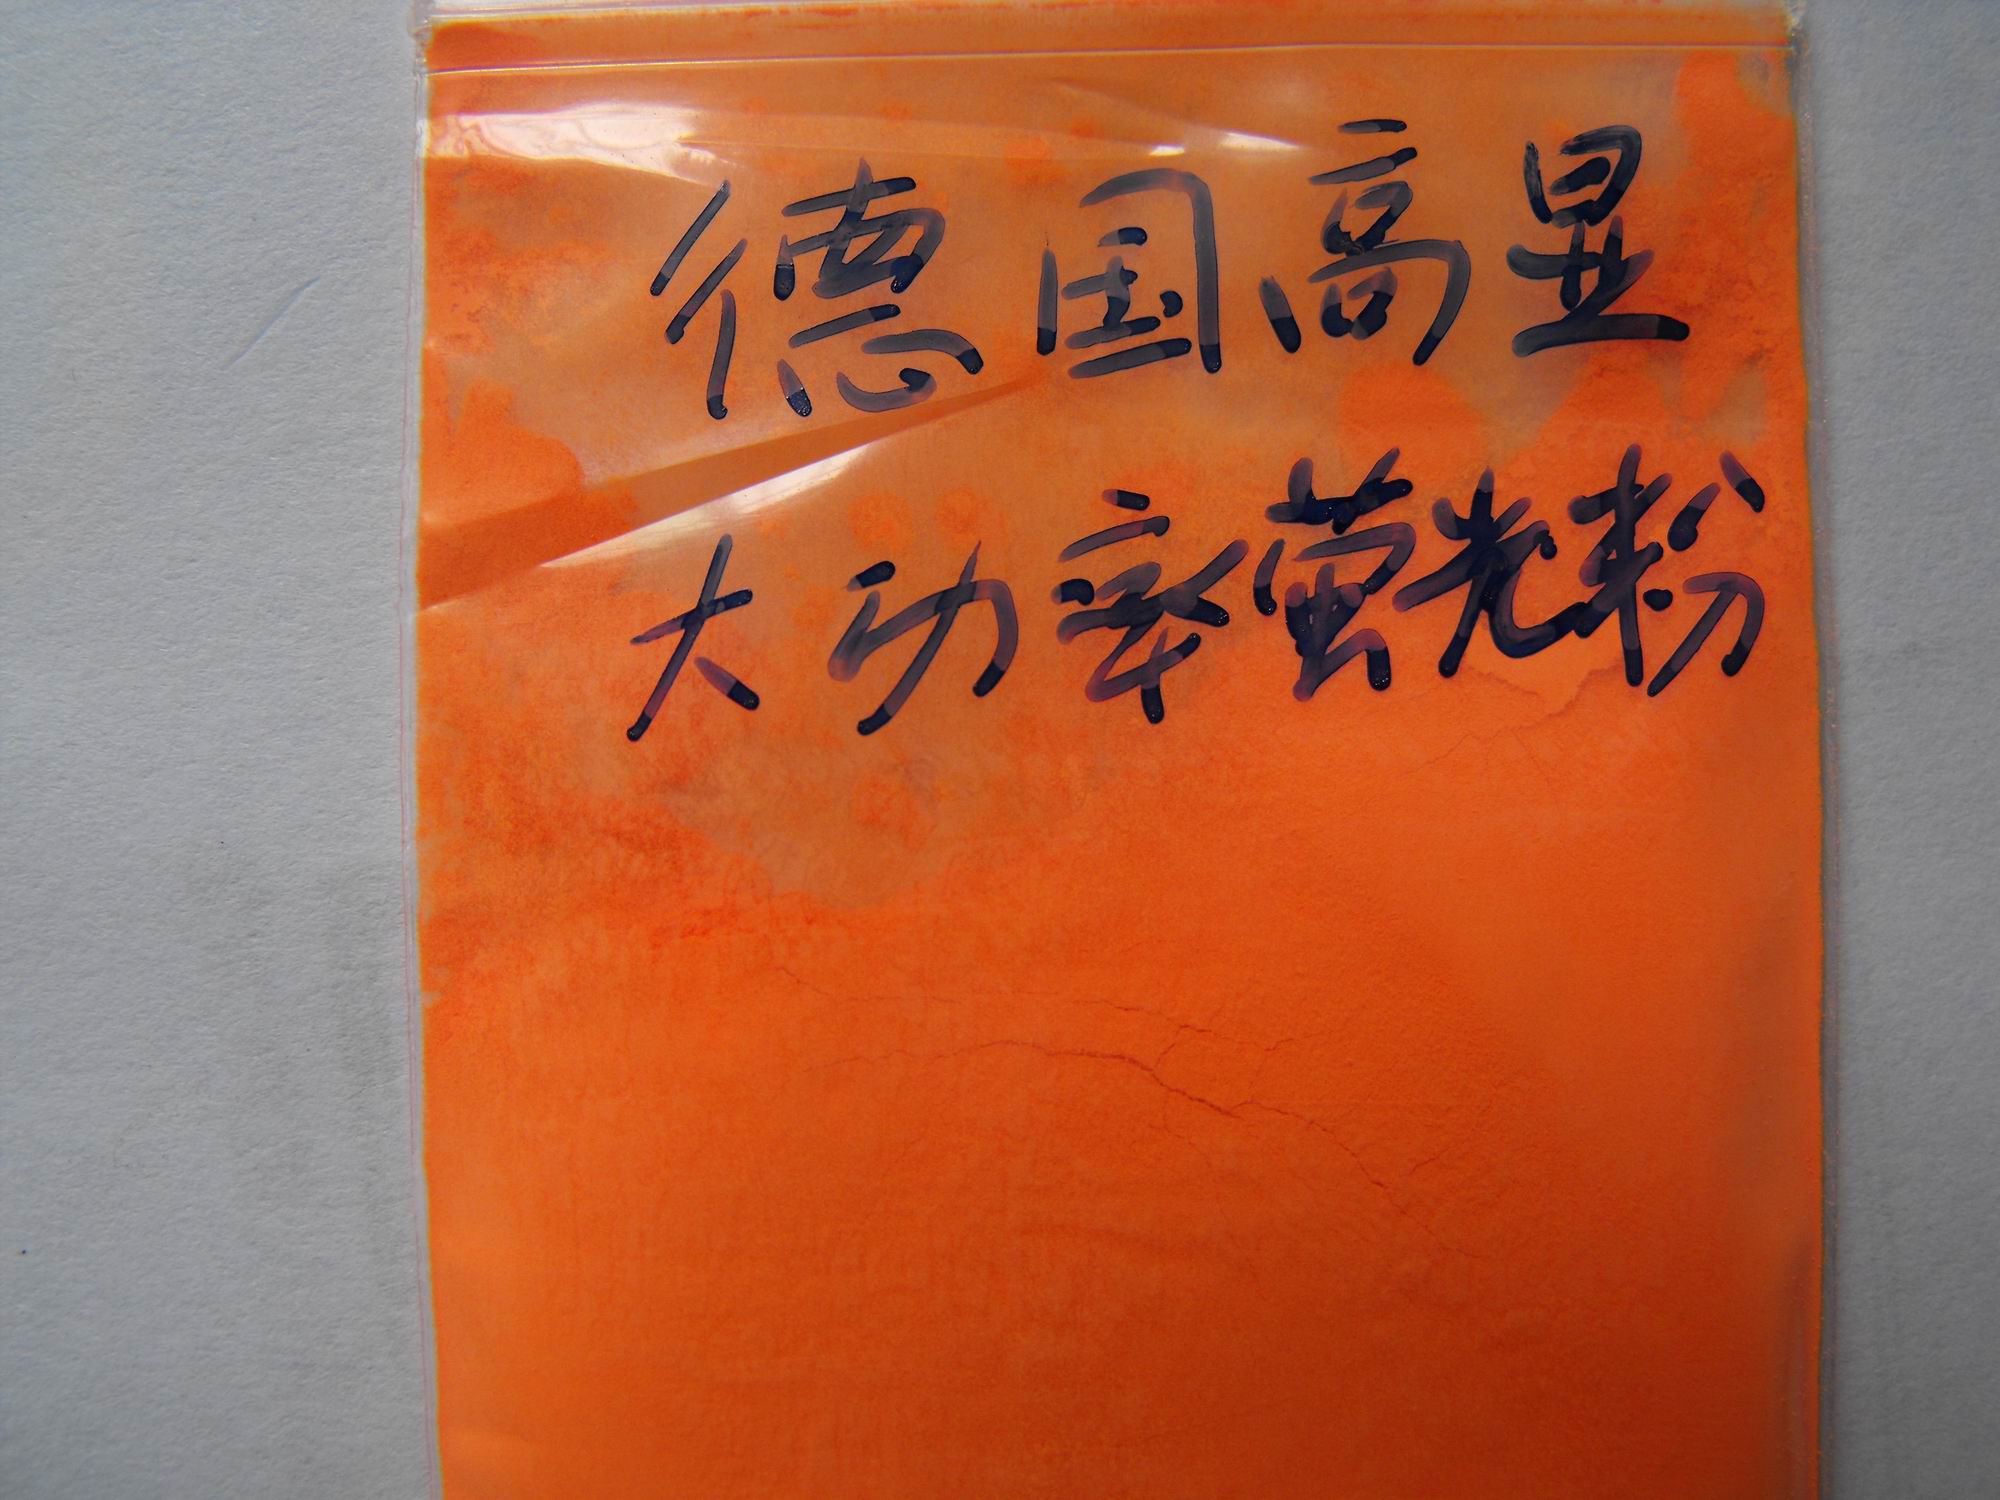 德国高显
大功率萤光粉